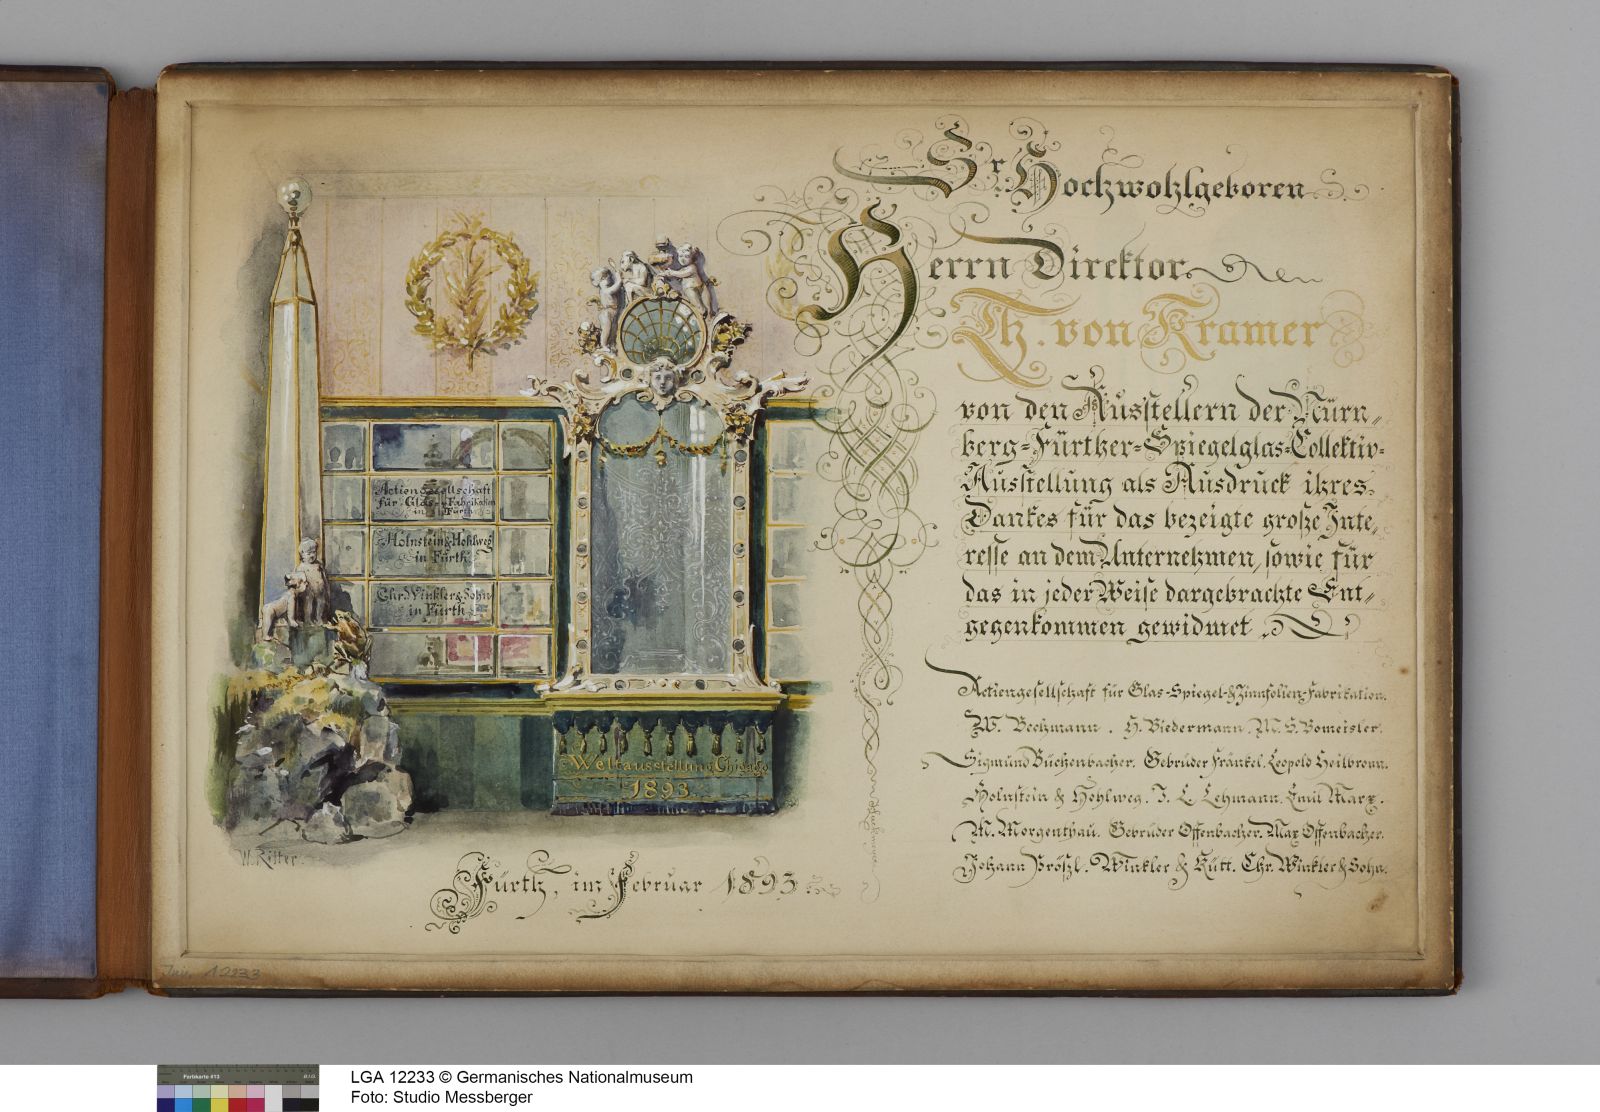 Sr. Hochwohlgeboren
Herrn Direktor
Th. von Kramer
von den Ausstellern der Nürn-
berg-Fürther-Spiegelglas-Collektiv-
Ausstellung als Ausdruck ihres
Dankes für das bezeigte große Inte-
resse an dem Unternehmen, sowie für
das in jeder Weise dargebrachte Ent-
gegenkommen gewidmet.
Actiengesellschaft für Glas-Spiegel-& Zinnfolien-Fabrikation.
W. Bechmann. H. Biedermann. M. S. Bomeisler.
Sigmund Büchenbacher. Gebrüder Fränkel. Leopold Heilbronn.
Holnstein & Hohlweg. J. L. Lehmann. Emil Marx.
M. Morgenthau. Gebrüder Offenbacher. Max Offenbacher.
Johann Prößl. Winkler & Kütt. Chr. Winkler & Sohn.
Actiengesellschaft
für Glas- Fabrikation
in Fürth
Holnstein & Hohlweg
in Fürth
Chr. Winkler & Sohn
in Fürth
Weltausstellung Chicago
1893
W. Ritter.
Fürth, im Februar 1893
Inv. 12233
Farbkarte #13
B.I.G.
LGA 12233 © Germanisches Nationalmuseum
Foto: Studio Messberger